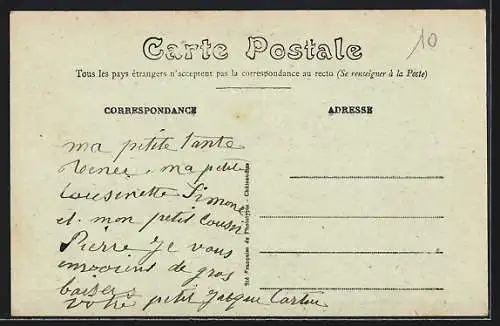 10
Carte Postale
Tous les pays étrangers n'acceptent pas la correspondance au recto (Se renseigner à la Poste)
CORRESPONDANCE
ADRESSE
ma petite tante
Renée, ma petite
Cousinette Simone
et mon petit cousin
Pierre Je vous
envoie de gros
baisers
votre petit Jacque
Sté Française de Phototypie - Châteaudun